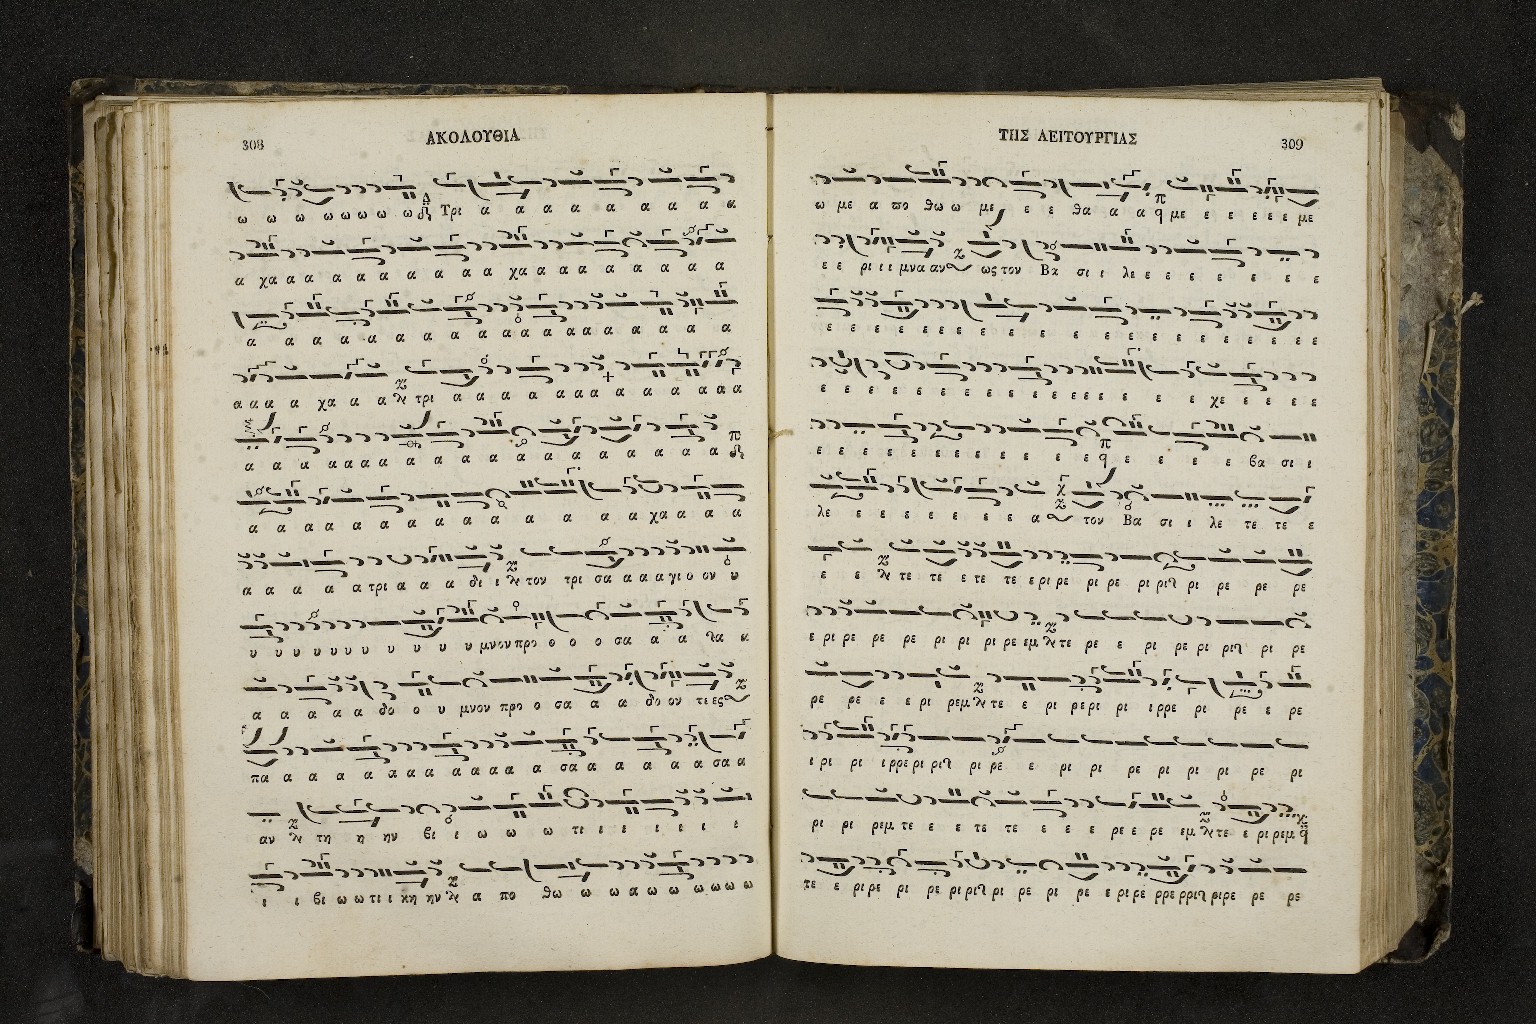 308
ΑΚΟΛΟΥΘΙΑ
ω ω ω ω ω ω ω ω ω Τρι α α α α α α α α
α χα α α α α α α α α α χα α α α α α α α
α α α α α α α α α α α α α α α α α
α α α α χα α α τρι α α α α α α α α α α α α α
α α α α α α α α α α α α α α α α α α α
α α α α α α α α α α α α α α χα α α α
α α α α α τρι α α α δι ι τον τρι σα α α α γι ο ον υ
υ υ υ υ υ υ υ υ υ υ υ υ μνον προ ο ο ο σα α α α
α α α α α δο ο υ μνον προ ο σα α α δο ον τι ες
πα α α α α α α α α α α α α σα α α α α α σα α
αν τη η ην βι ι ω ω ω τι ι ι ι ι ι ι
ι ι βι ω ω τι ι κη ην α πο θω ω ω α ω ω ω ω ω ω
ΤΗΣ ΛΕΙΤΟΥΡΓΙΑΣ
309
ω με α πο θω ω με ε ε θα α α με ε ε ε ε ε με
ε ε ρι ι ι μνα αν ως τον Βα σι ι λε ε ε ε ε ε ε
ε ε ε ε ε ε ε ε ε ε ε ε ε ε ε ε ε ε ε
ε ε ε ε ε ε ε ε ε ε ε ε ε ε ε ε ε χε ε ε ε ε
ε ε ε ε ε ε ε ε ε ε ε ε ε ε ε ε ε βα σι ι
λε ε ε ε ε ε ε ε α τον Βα σι ι λε τε τε ε
ε ε τε τε ε τε τε ε ρι ρε ρι ρε ρι ρι ρι ρε ρε ρε
ε ρι ρε ρε ρε ρι ρι ρι ρε εμ τε ρε ε ρι ρε ρι ρι ρι ρε
ρε ρε ε ε ρι ρεμ τε ε ρι ρε ρι ρι ι ρρε ρι ρε ε ρε
ι ρι ρι ι ρρε ρι ρι ρι ρε ε ρι ρι ρε ρι ρι ρι ρε ρι
ρι ρι ρεμ τε ε ε τε τε ε ε ε ρε ε ρε εμ τε ε ρι ρεμ
τε ε ρι ρε ρι ρε ρι ρι ρι ρε ρι ρε ε ρι ρε ρρε ρρι ρι ρε ρε ρε